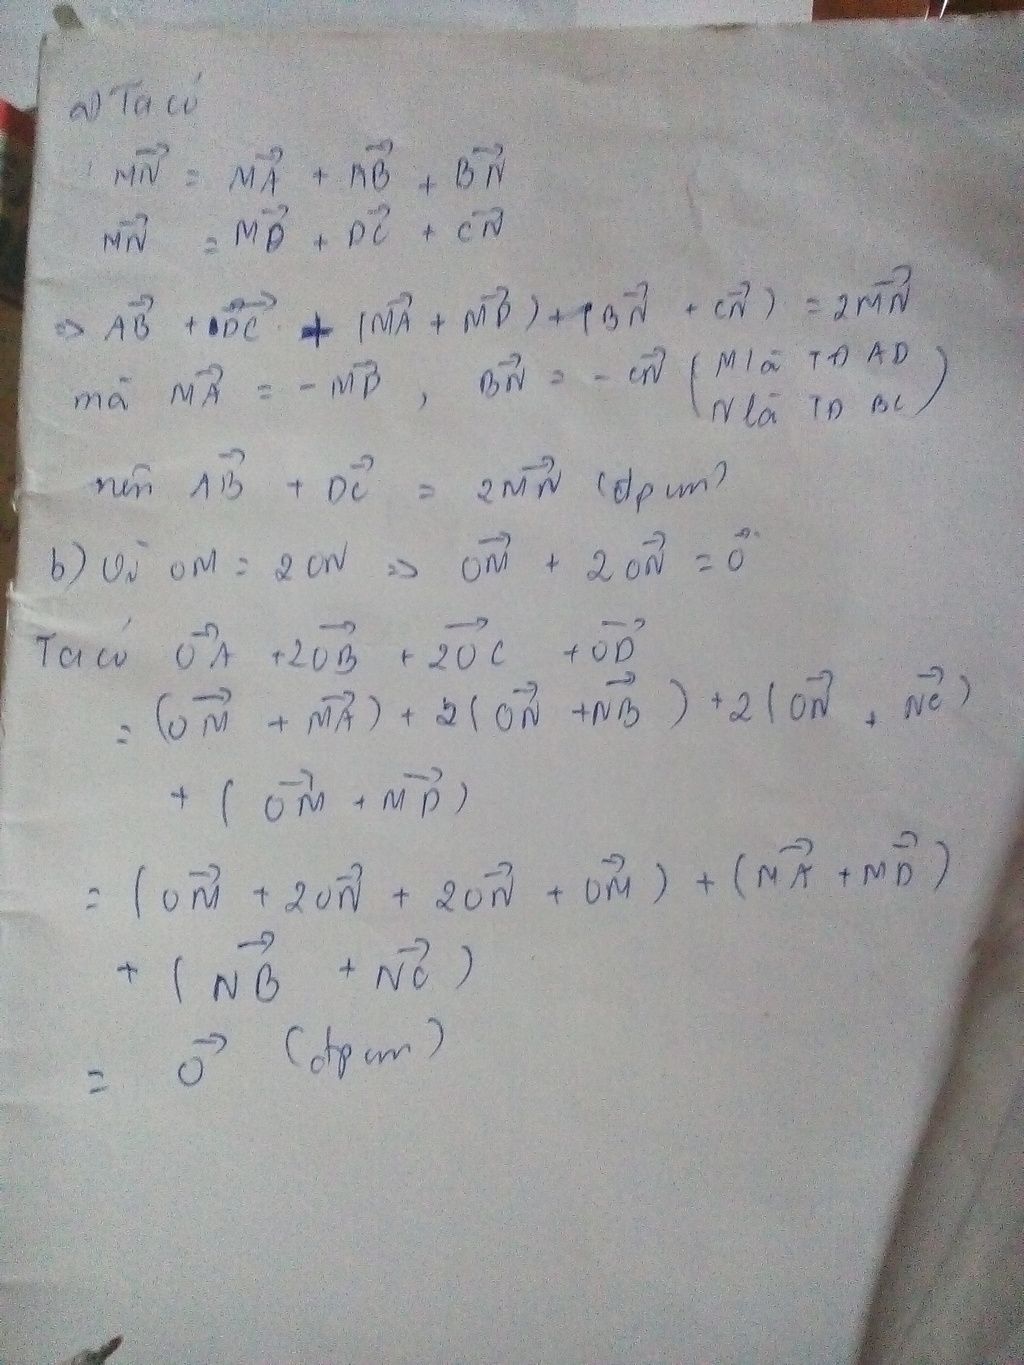 a) Ta có
MN→ = MA→ + AB→ + BN→
MN→ = MD→ + DC→ + CN→
=> AB→ + DC→ + (MA→ + MD→) + (BN→ + CN→) = 2MN→
mà MA→ = - MD→, BN→ = - CN→ (M là TĐ AD
N là TĐ BC)
nên AB→ + DC→ = 2MN→ (đpcm)
b) Vì OM = 2ON => OM→ + 2ON→ = 0→
Ta có OA→ + 2OB→ + 2OC→ + OD→
= (OM→ + MA→) + 2(ON→ + NB→) + 2(ON→ + NC→)
+ (OM→ + MD→)
= (OM→ + 2ON→ + 2ON→ + OM→) + (MA→ + MD→)
+ (NB→ + NC→)
= 0→ (đpcm)